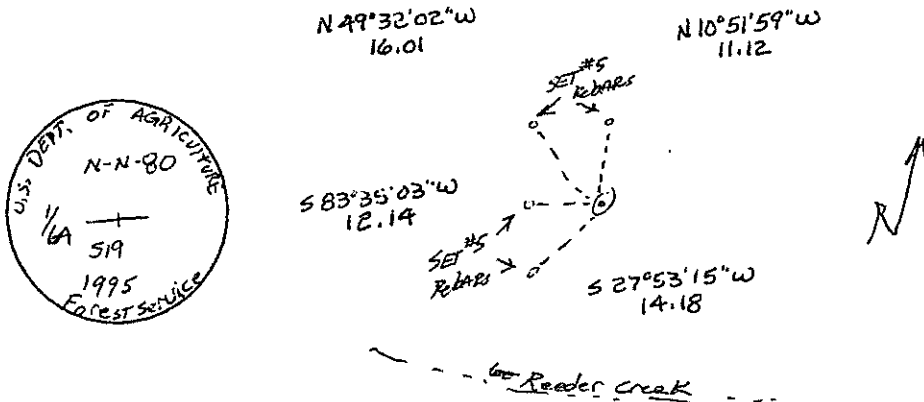 N 49°32'02" W
16.01
N 10°51'59" W
11.12
SET #5
RebARs
U.S. DEPT. OF AGRICULTURE
N-N-80
1/6A
S19
1995
Forest Service
S 83°35'03" W
12.14
SET #5
RebARs
S 27°53'15" W
14.18
N
Reeder Creek